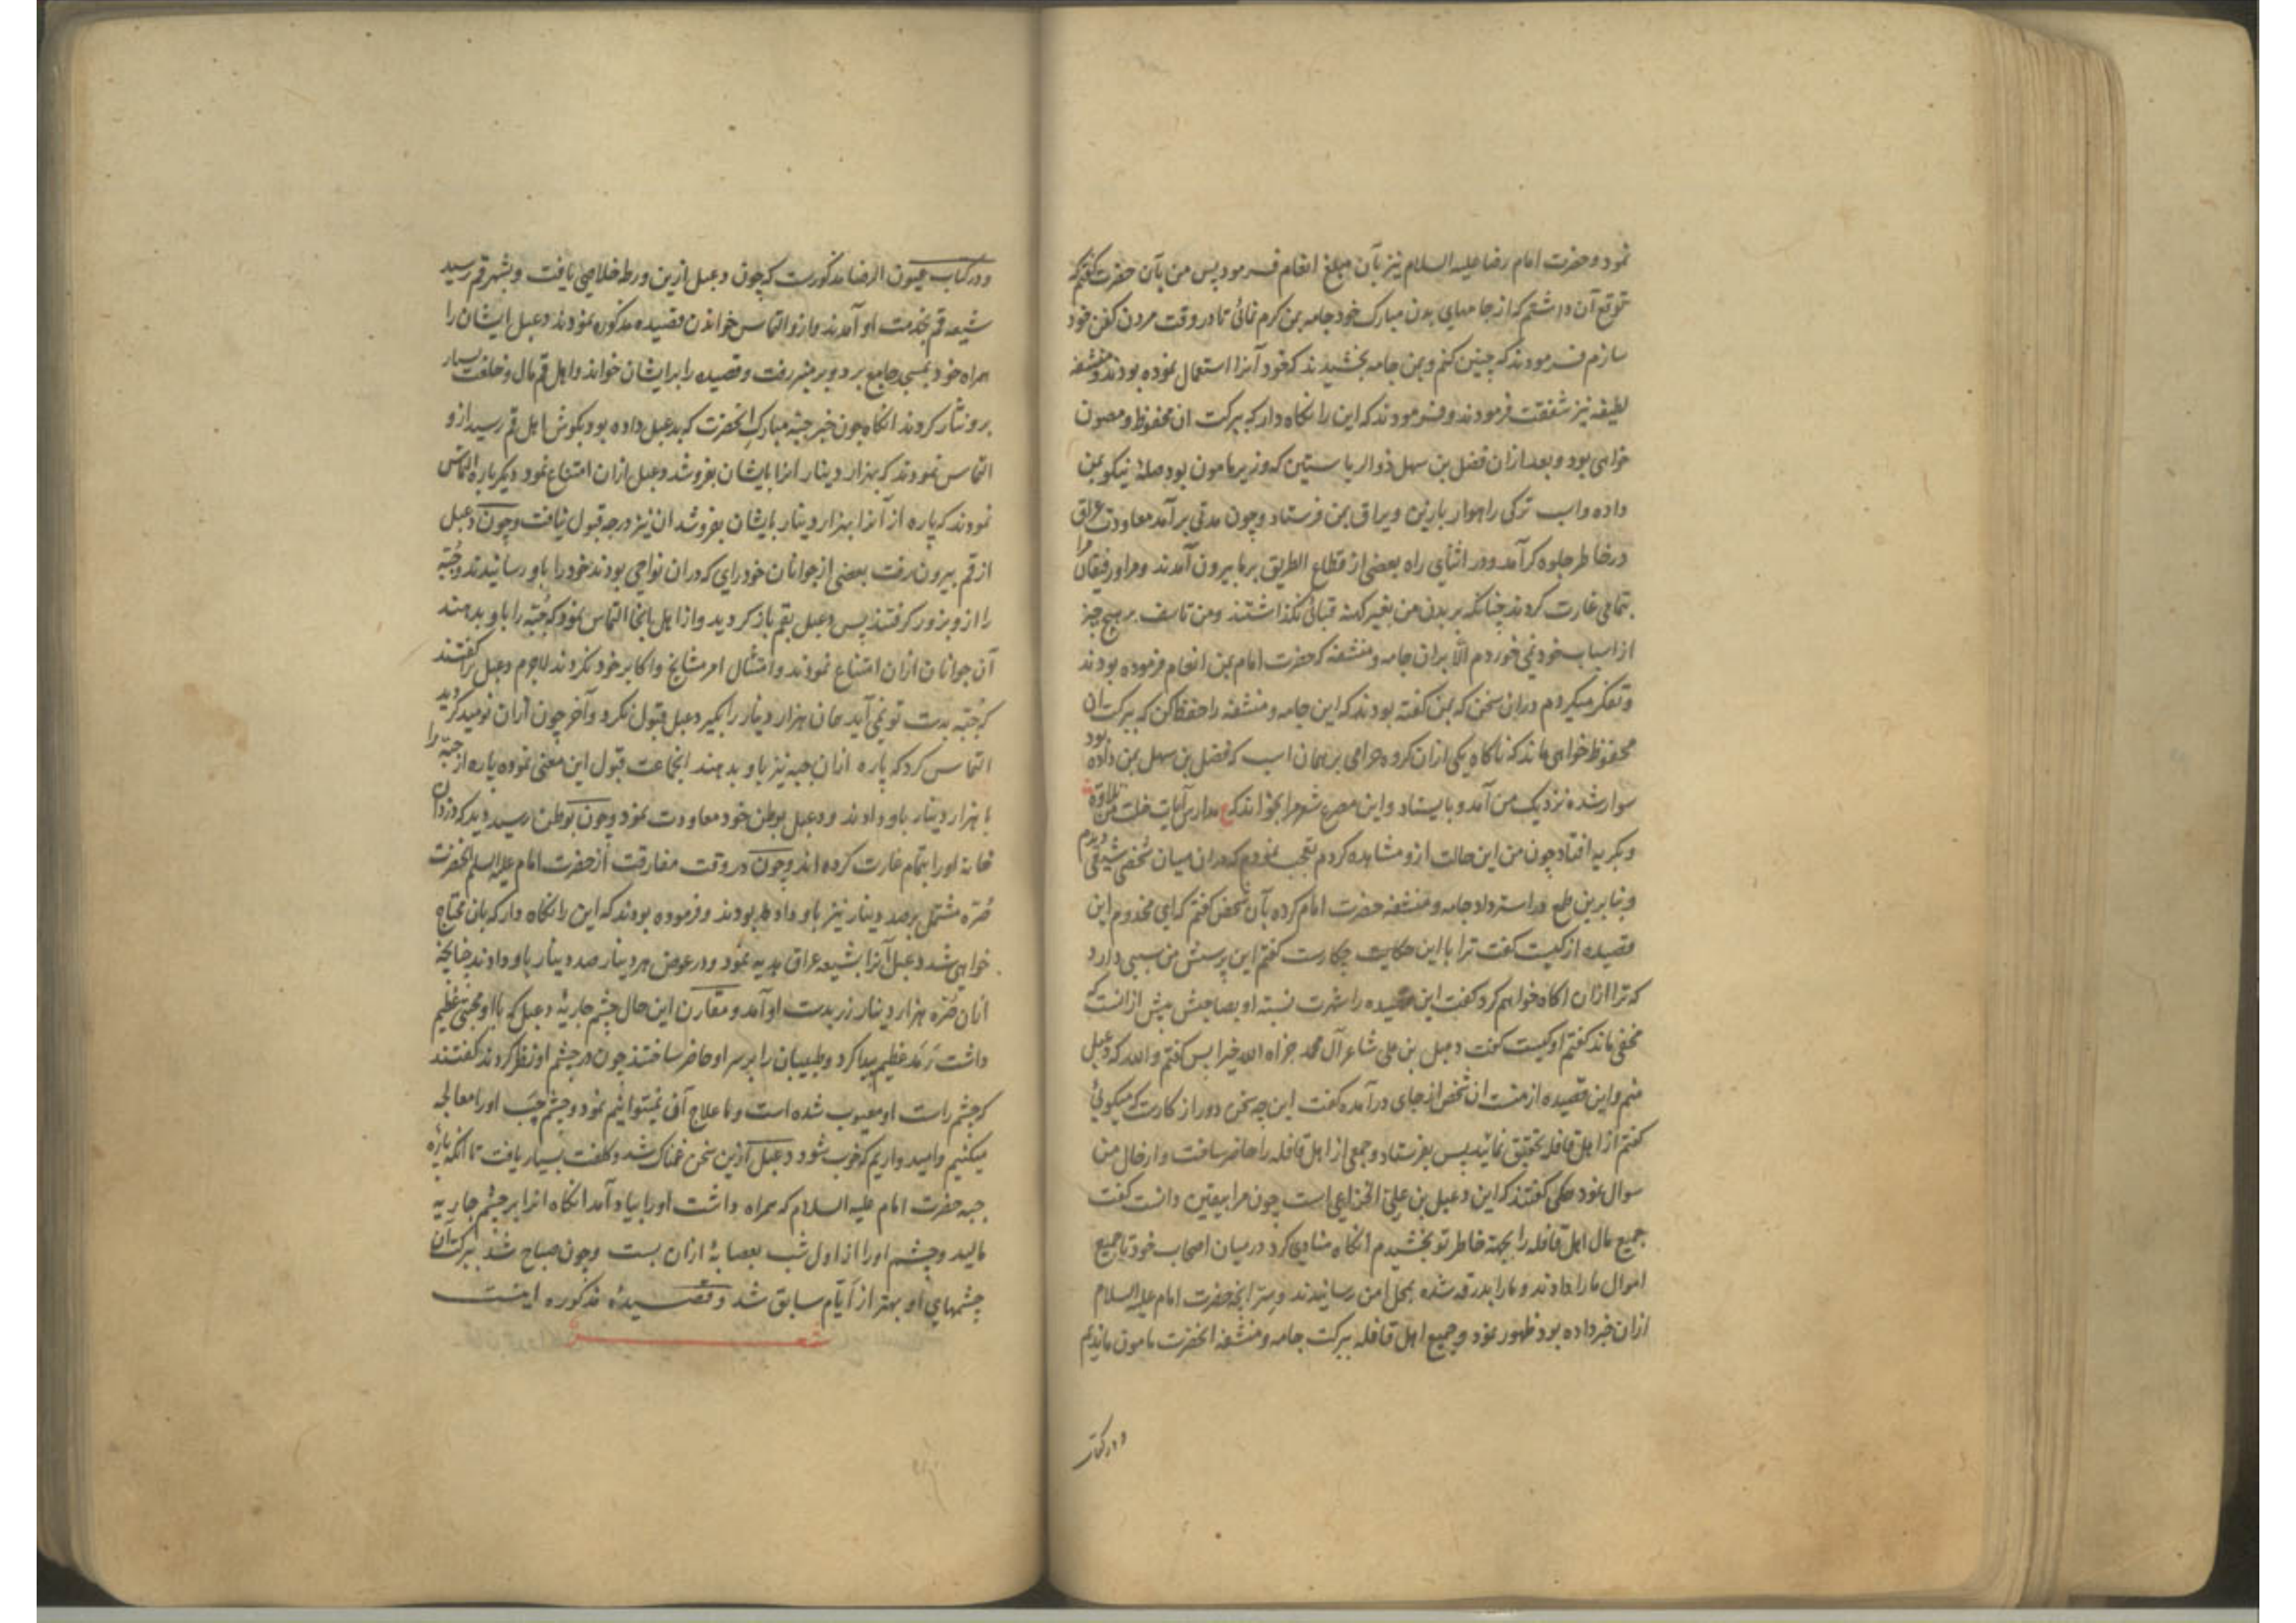 نمود و حضرت امام رضا علیه السلام نیز بآن مبلغ انعام فرمود پس من بآن حضرت گفتم که
توقع آن داشتم که از جامهای بدن مبارک خود جامه بمن کرم نمائی تا در وقت مردن کفن خود
سازم فرمودند که چنین کنم و بمن جامه بخشیدند که خود آنرا استعمال نموده بودند و منشفه
لطیفه نیز شفقت فرمودند و فرمودند که این را نگاه دار که ببرکت ان محفوظ و مصون
خواهی بود و بعد ازان فضل بن سهل ذو الریاستین که وزیر مامون بود صلهٔ نیکو بمن
داده و اسب ترکی راهوار بازین و یراق بمن فرستاد و چون مدتی برآمد معاودت عراق
در خاطر جلوه کر آمد و در اثنای راه بعضی از قطاع الطریق بر ما بیرون آمدند و مرا و رفیقان مرا
بتمامی غارت کردند چنانکه بر بدن من بغیر کهنه قبائی نگذاشتند و من تاسف بر هیچ چیز
از اسباب خود نمی خوردم الا بران جامه و منشفه که حضرت امام بمن انعام فرموده بودند
و تفکر میکردم دران سخن که بمن گفته بودند که این جامه و منشفه را حفظ کن که ببرکت ان
محفوظ خواهی ماند که ناگاه یکی ازان کروه حرامی بر همان اسب که فضل بن سهل بمن داده بود
سوار شده نزدیک من آمد و بایستاد و این مصرع شعر مرا بخواند که ع مدارس آیات خلت من تلاوة
و بگریه افتاد چون من این حالت ازو مشاهده کردم تعجب نمودم که دران میان شخصی شیعی دیدم
و بنابرین طمع در استرداد جامه و منشفه حضرت امام کرده بآن شخص گفتم که ای مخدوم این
قصیده از کیست گفت ترا با این حکایت چکارست گفتم این پرسش من سببی دارد
که ترا ازان اگاه خواهم کرد گفت این قصیده را شهرت نسبة او بصاحبش بیش ازانست که
مخفی ماند گفتم او کیست گفت دعبل بن علی شاعر آل محمد جزاه الله خیرا پس گفتم والله که دعبل
منم و این قصیده از منست ان شخص از جای درآمده گفت این چه سخن دور از کارست که میگوئی
گفتم از اهل قافله تحقیق نمائید پس بفرستاد و جمعی از اهل قافله را حاضر ساخت و از حال من
سوال نمود همکی گفتند که این دعبل بن علی الخزاعی است چون مرا بیقین دانست گفت
جمیع مال اهل قافله را بجهة خاطر تو بخشیدم انگاه منادی کرد در میان اصحاب خود تا جمیع
اموال ما را دادند و ما را بدرقه شده بمحل امن رسانیدند و سر انچه حضرت امام علیه السلام
ازان خبر داده بود ظهور نمود و جمیع اهل قافله ببرکت جامه و منشفه انحضرت مامون ماندیم
و در کتاب
و در کتاب عیون الرضا مذکورست که چون دعبل ازین ورطه خلاصی یافت و بشهر قم رسید
شیعه قم بخدمت او آمدند و ازو التماس خواندن قصیده مذکوره نمودند دعبل ایشان را
همراه خود بمسجد جامع برد و بر منبر رفت و قصیده را برایشان خواند و اهل قم مال و خلعت بسیار
برو نثار کردند انگاه چون خبر جبه مبارک انحضرت که بدعبل داده بود بگوش اهل قم رسید ازو
التماس نمودند که بهزار دینار انرا بایشان بفروشد دعبل ازان امتناع نمود دیکر باره التماس
نمودند که پاره از آنرا بهزار دینار بایشان بفروشد ان نیز درجه قبول نیافت و چون دعبل
از قم بیرون رفت بعضی از جوانان خودرای که دران نواحی بودند خود را باو رسانیدند و جبه
را ازو بزور گرفتند پس دعبل بقم باز کردید و از اهل انجا التماس نمود که جبه را باو بدهند
آن جوانان ازان امتناع نمودند و امتثال امر مشایخ و اکابر خود نکردند لاجرم دعبل را گفتند
که جبه بدست تو نمی آید همان هزار دینار را بگیر دعبل قبول نکرد و آخر چون ازان نومید کردید
التماس کرد که پاره ازان جبه نیز باو بدهند انجماعت قبول این معنی نموده پاره از جبه را
با هزار دینار باو دادند و دعبل بوطن خود معاودت نمود و چون بوطن رسید دید که دزدان
خانه اورا بتمام غارت کرده اند و چون در وقت مفارقت از حضرت امام علیه السلم انحضرت
صره مشتمل بر صد دینار نیز باو داده بودند و فرموده بودند که این را نگاه دار که بان محتاج
خواهی شد دعبل آنرا بشیعه عراق هدیه نمود و در عوض هر دینار صد دینار باو دادند چنانچه
ازان صره هزار دینار زر بدست او آمد و مقارن این حال چشم جاریهٔ دعبل که با او محبتی عظیم
داشت رمد عظیم پیدا کرد و طبیبان را بر سر او حاضر ساختند چون در چشم او نظر کردند گفتند
که چشم راست او معیوب شده است و ما علاج آن نمیتوانیم نمود و چشم چپ اورا معالجه
میکنیم و امید داریم که خوب شود دعبل ازین سخن غمناک شد و کلفت بسیار یافت تا انکه پاره
جبه حضرت امام علیه السلام که همراه داشت اورا بیاد آمد انگاه انرا بر چشم جاریه
مالید و چشم اورا از اول شب بعصابهٔ ازان بست و چون صباح شد ببرکت آن
چشمهای او بهتر از ایام سابق شد و قصیدهٔ مذکوره اینست
شعر